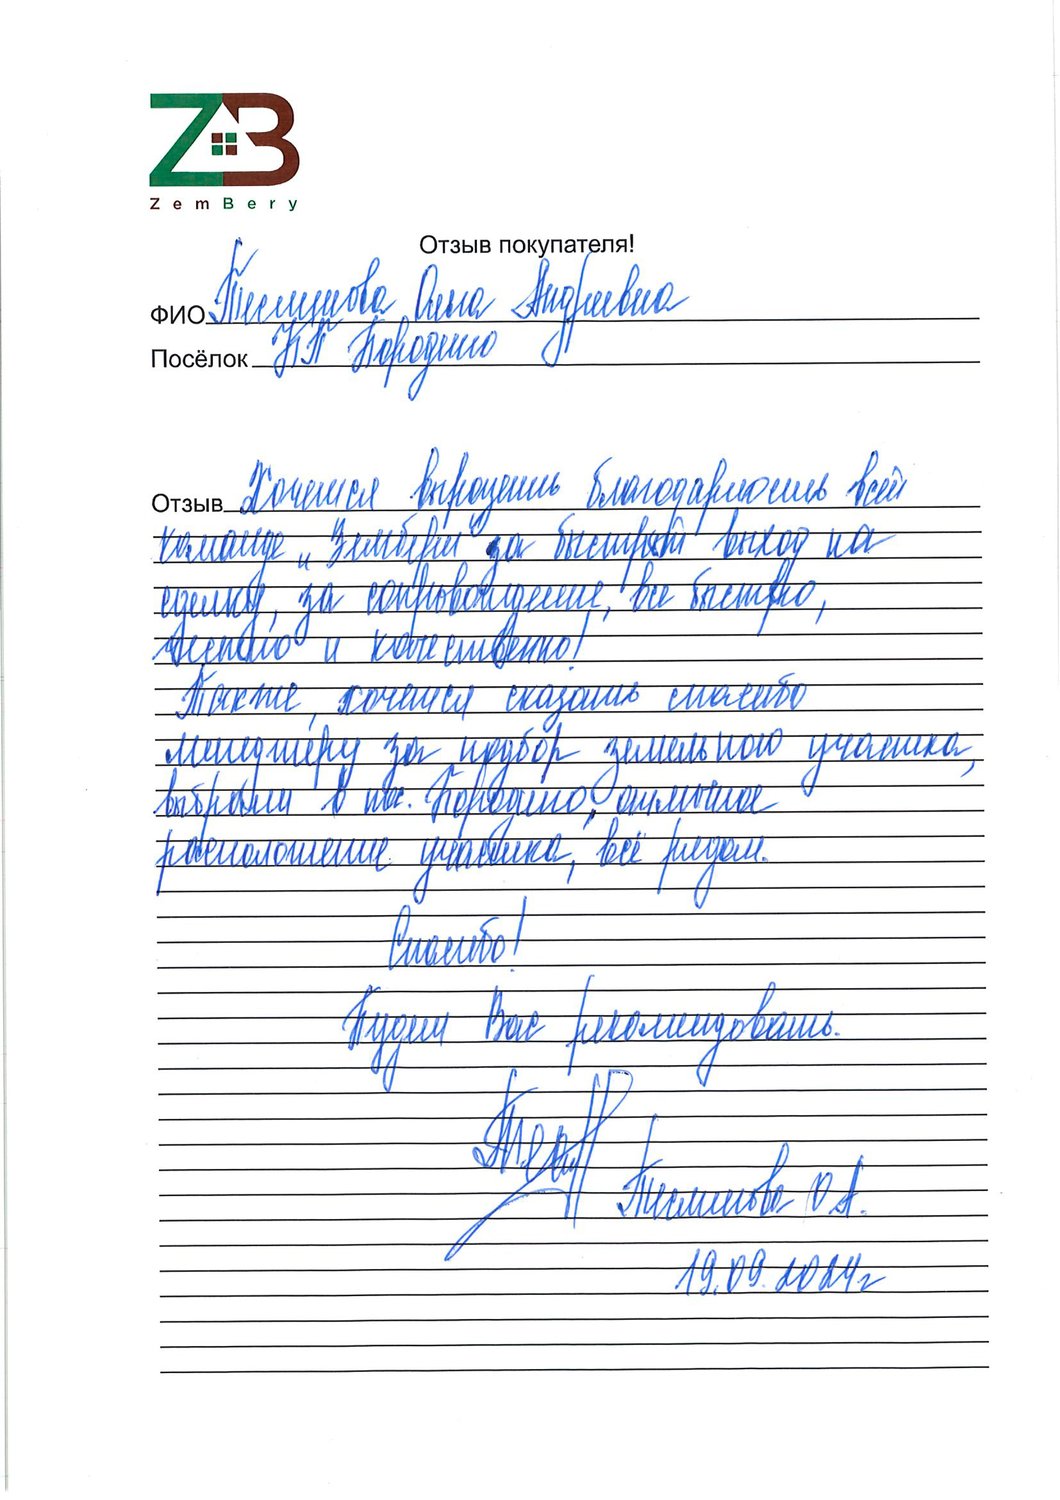 ZB
ZemBery
Отзыв покупателя!
ФИО Андреевна
Посёлок КП Бородино
Отзыв Хочется выразить благодарность всей
команде "Зембери" за быстрый выход на
сделку, за сопровождение, все быстро,
и качественно!
Также, хочется сказать спасибо
менеджеру за подбор земельного участка,
выбрали в пос. Бородино, отличное
расположение участка, всё рядом.
Спасибо!
Будем Вас рекомендовать.
О.А.
19.09.2024г